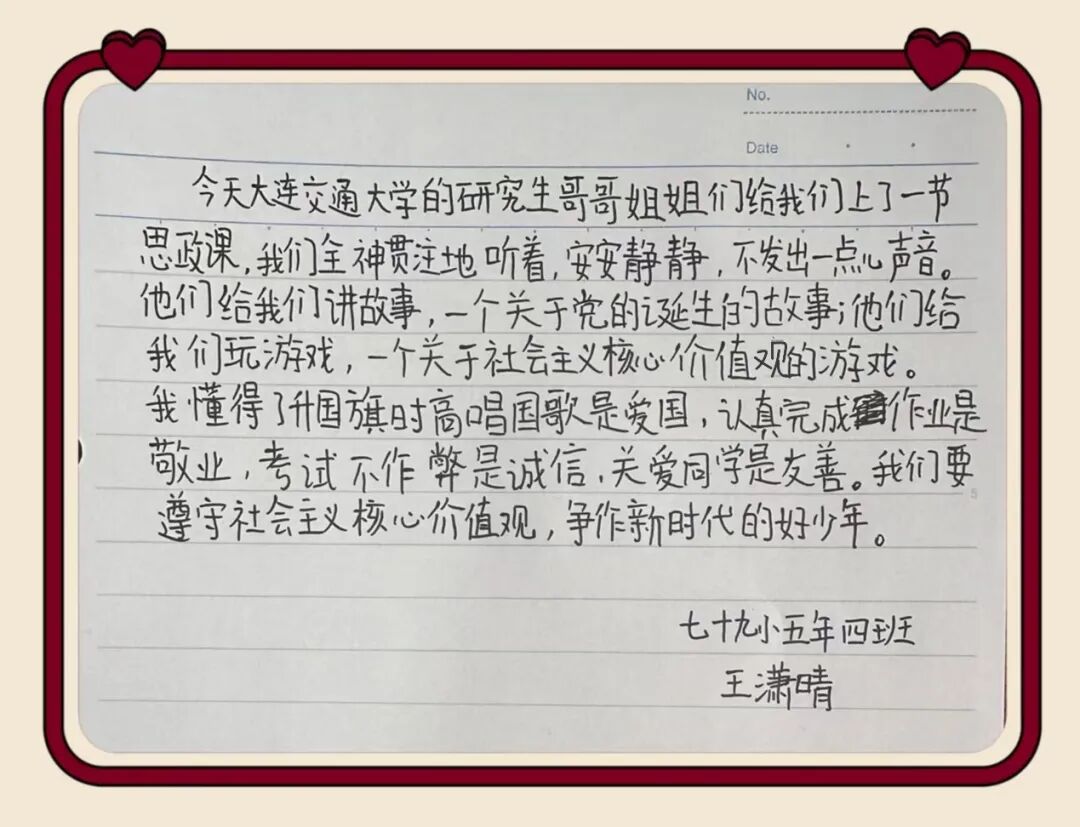 No.
Date
今天大连交通大学的研究生哥哥姐姐们给我们上了一节
思政课,我们全神贯注地听着,安安静静,不发出一点心声音。
他们给我们讲故事,一个关于党的诞生的故事;他们给
我们玩游戏,一个关于社会主义核心价值观的游戏。
我懂得了升国旗时高唱国歌是爱国,认真完成作业是
敬业,考试不作弊是诚信,关爱同学是友善。我们要
遵守社会主义核心价值观,争作新时代的好少年。
5
七十九小五年四班
王潇晴